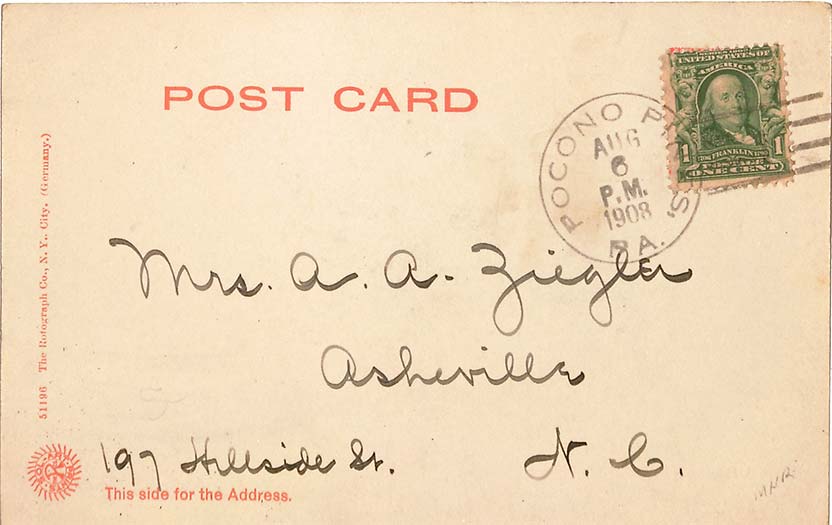 POST CARD
UNITED STATES OF
AMERICA
1 FRANKLIN 1
POSTAGE
ONE CENT
POCONO P S, PA.
AUG
6
P.M.
1908
Mrs. A. A. Ziegler
Asheville
197 Hillside St. N. C.
This side for the Address.
51196 The Rotograph Co., N. Y. City. (Germany.)
MNR